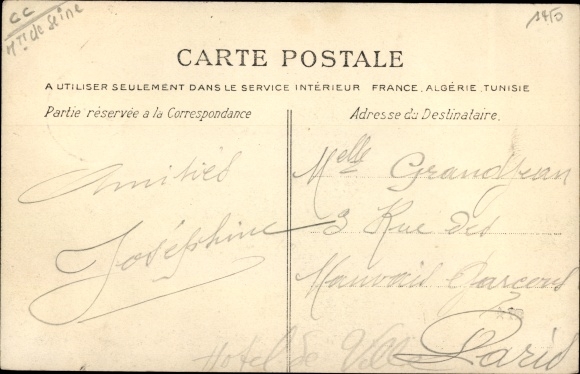 CC
Mtt de Seine
1450
CARTE POSTALE
A UTILISER SEULEMENT DANS LE SERVICE INTÉRIEUR FRANCE, ALGÉRIE, TUNISIE
Partie réservée a la Correspondance
Adresse du Destinataire.
Amitiés
Joséphine
Melle Grandjean
3 Rue des
Mauvais Garcons
Paris
Hotel de Ville